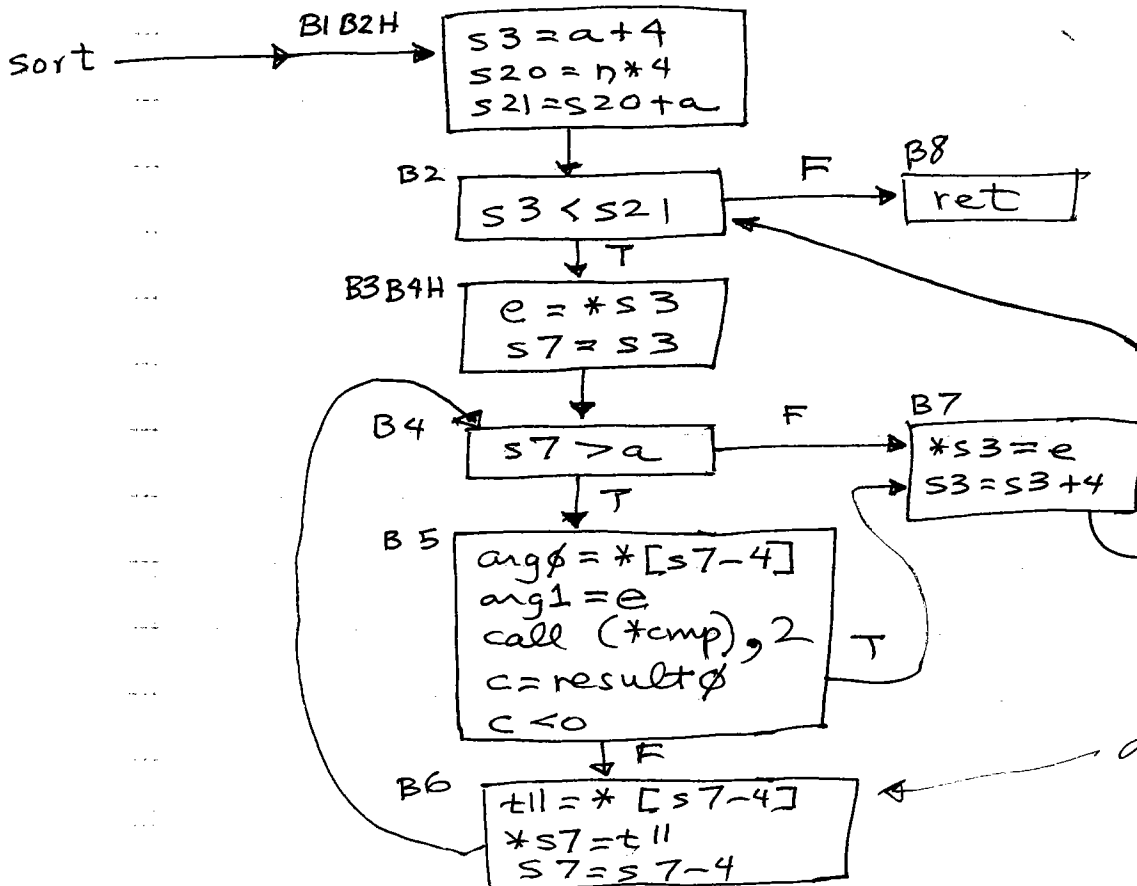 sort
B1B2H
s3 = a+4
s20 = n*4
s21 = s20+a
B2
s3 < s21
F
B8
ret
T
B3B4H
e = *s3
s7 = s3
B4
s7 > a
F
B7
*s3 = e
s3 = s3+4
T
B5
argø = *[s7-4]
arg1 = e
call (*cmp), 2
c = resultø
c <0
T
F
B6
t11 = * [s7-4]
*s7 = t11
s7 = s7-4